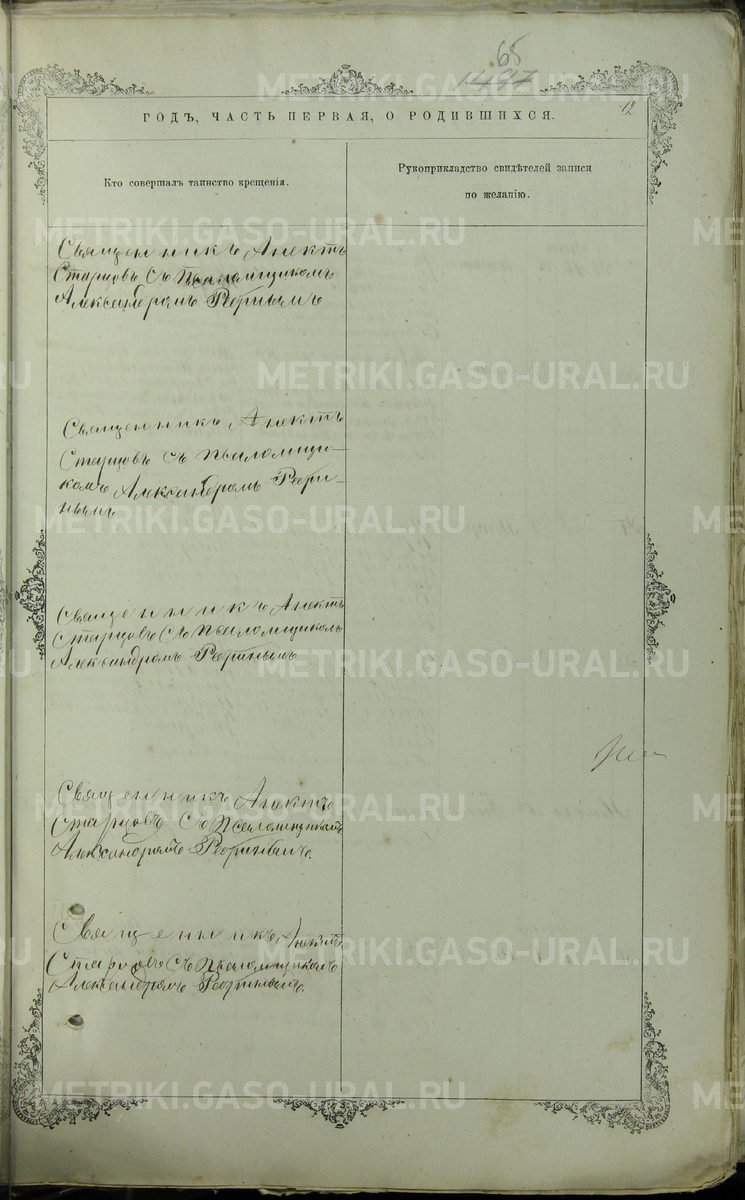 68
1497
12
ГОДЪ, ЧАСТЬ ПЕРВАЯ, О РОДИВШИХСЯ.
Кто совершалъ таинство крещенія.
Рукоприкладство свидѣтелей записи
по желанію.
Священникъ Анектъ
Старцовъ съ Псаломщикомъ
Александромъ
Священникъ Анектъ
Старцовъ съ псаломщи-
комъ Александромъ
нымъ
Священникъ Анектъ
Старцовъ съ Псаломщикомъ
Александромъ
Священникъ Анектъ
Старцовъ съ Псаломщикомъ
Александромъ
Священникъ Анектъ
Старцовъ съ Псаломщикомъ
Александромъ
METRIKI.GASO-URAL.RU